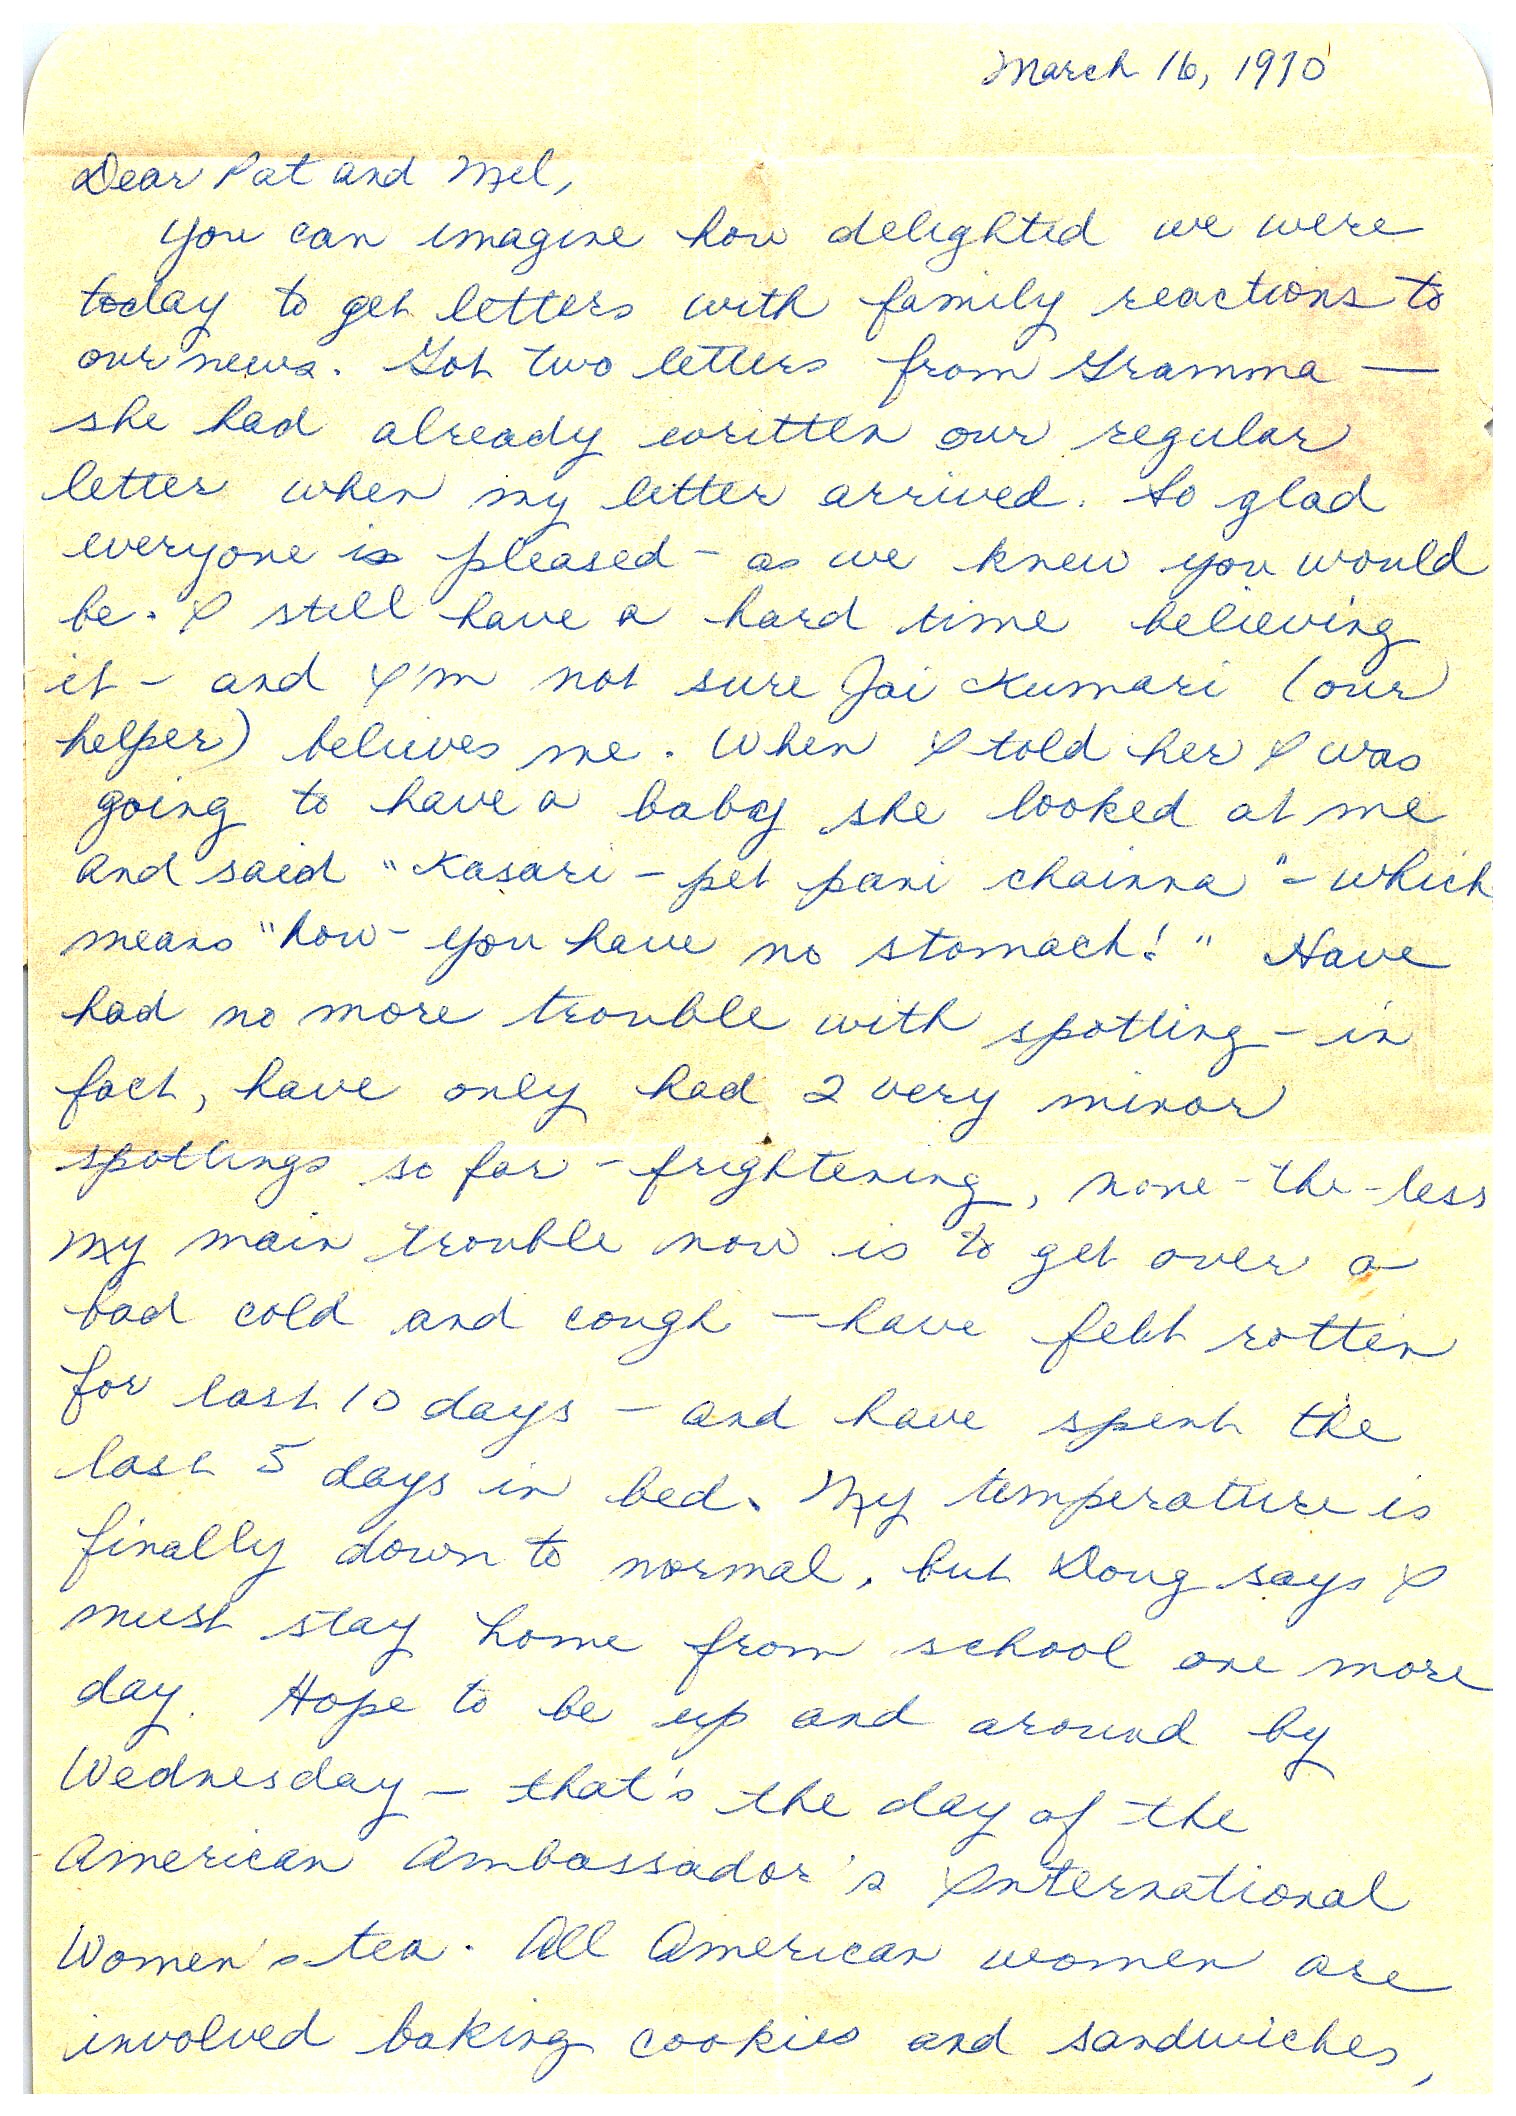 March 16, 1970
Dear Pat and Mel,
You can imagine how delighted we were
today to get letters with family reactions to
our news. Got two letters from Gramma —
she had already written our regular
letter when my letter arrived. So glad
everyone is pleased - as we knew you would
be. I still have a hard time believing
it - and I'm not sure Jai Kumari (our
helper) believes me. When I told her I was
going to have a baby she looked at me
and said "Kasari - pet pani chainna" - which
means "how - you have no stomach!" Have
had no more trouble with spotting - in
fact, have only had 2 very minor
spottings so far - frightening, none-the-less
My main trouble now is to get over a
bad cold and cough - have felt rotten
for last 10 days - and have spent the
last 5 days in bed. My temperature is
finally down to normal, but Doug says I
must stay home from school one more
day. Hope to be up and around by
Wednesday - that's the day of the
American Ambassador's International
Women's tea. All American women are
involved baking cookies and sandwiches,